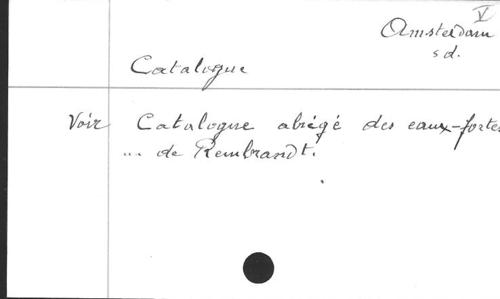 V
Amsterdam
s d.
Catalogue
Voir Catalogue abrégé des eaux-fortes
... de Rembrandt.